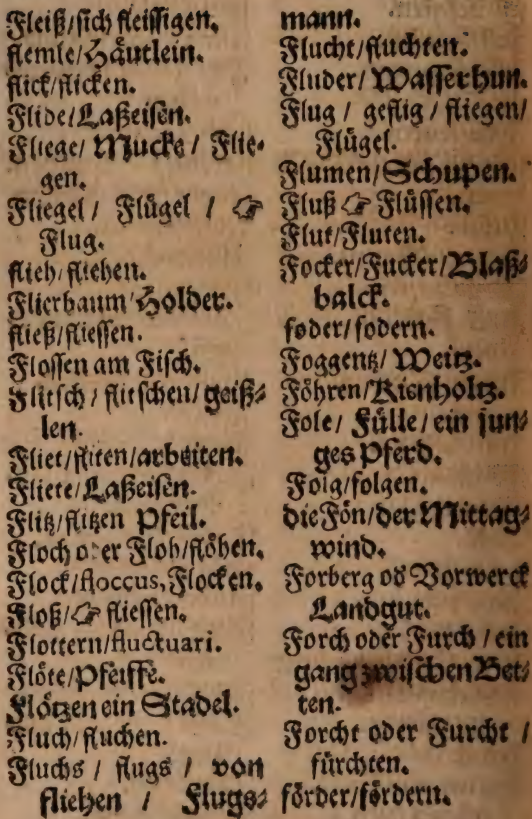 Fleiß/sich fleissigen.
flemle/Häutlein.
flick/flicken.
Flide/Laßeisen.
Fliege/ Mucke / Flie-
gen.
Fliegel / Flügel / ☞
Flug.
flieh/fliehen.
Flierbaum/Holder.
fließ/fliessen.
Flossen am Fisch.
Flitsch / flitschen/ geiß-
len.
Fliet/fliten/arbeiten.
Fliete/Laßeisen.
Flitz/flitzen Pfeil.
Floch oder Floh/flöhen.
Flock/floccus, Flocken.
Floß/☞ fliessen.
Flottern/fluctuari.
Flöte/Pfeiffe.
Flötzen ein Stadel.
Fluch/fluchen.
Fluchs / flugs / von
fliehen / Flugs-
mann.
Flucht/fluchten.
Fluder/Wasserhun.
Flug / geflig / fliegen/
Flügel.
Flumen/Schupen.
Fluß ☞ Flüssen.
Flut/Fluten.
Focker/Fucker/Blaß-
balck.
foder/fodern.
Foggentz/Weitz.
Föhren/Kienholtz.
Fole/ Fülle/ein jun-
ges Pferd.
Folg/folgen.
die Fön/der Mittag-
wind.
Forberg od Vorwerck
Landgut.
Forch oder Furch / ein
gang zwischen Bet-
ten.
Forcht oder Furcht /
fürchten.
förder/fördern.